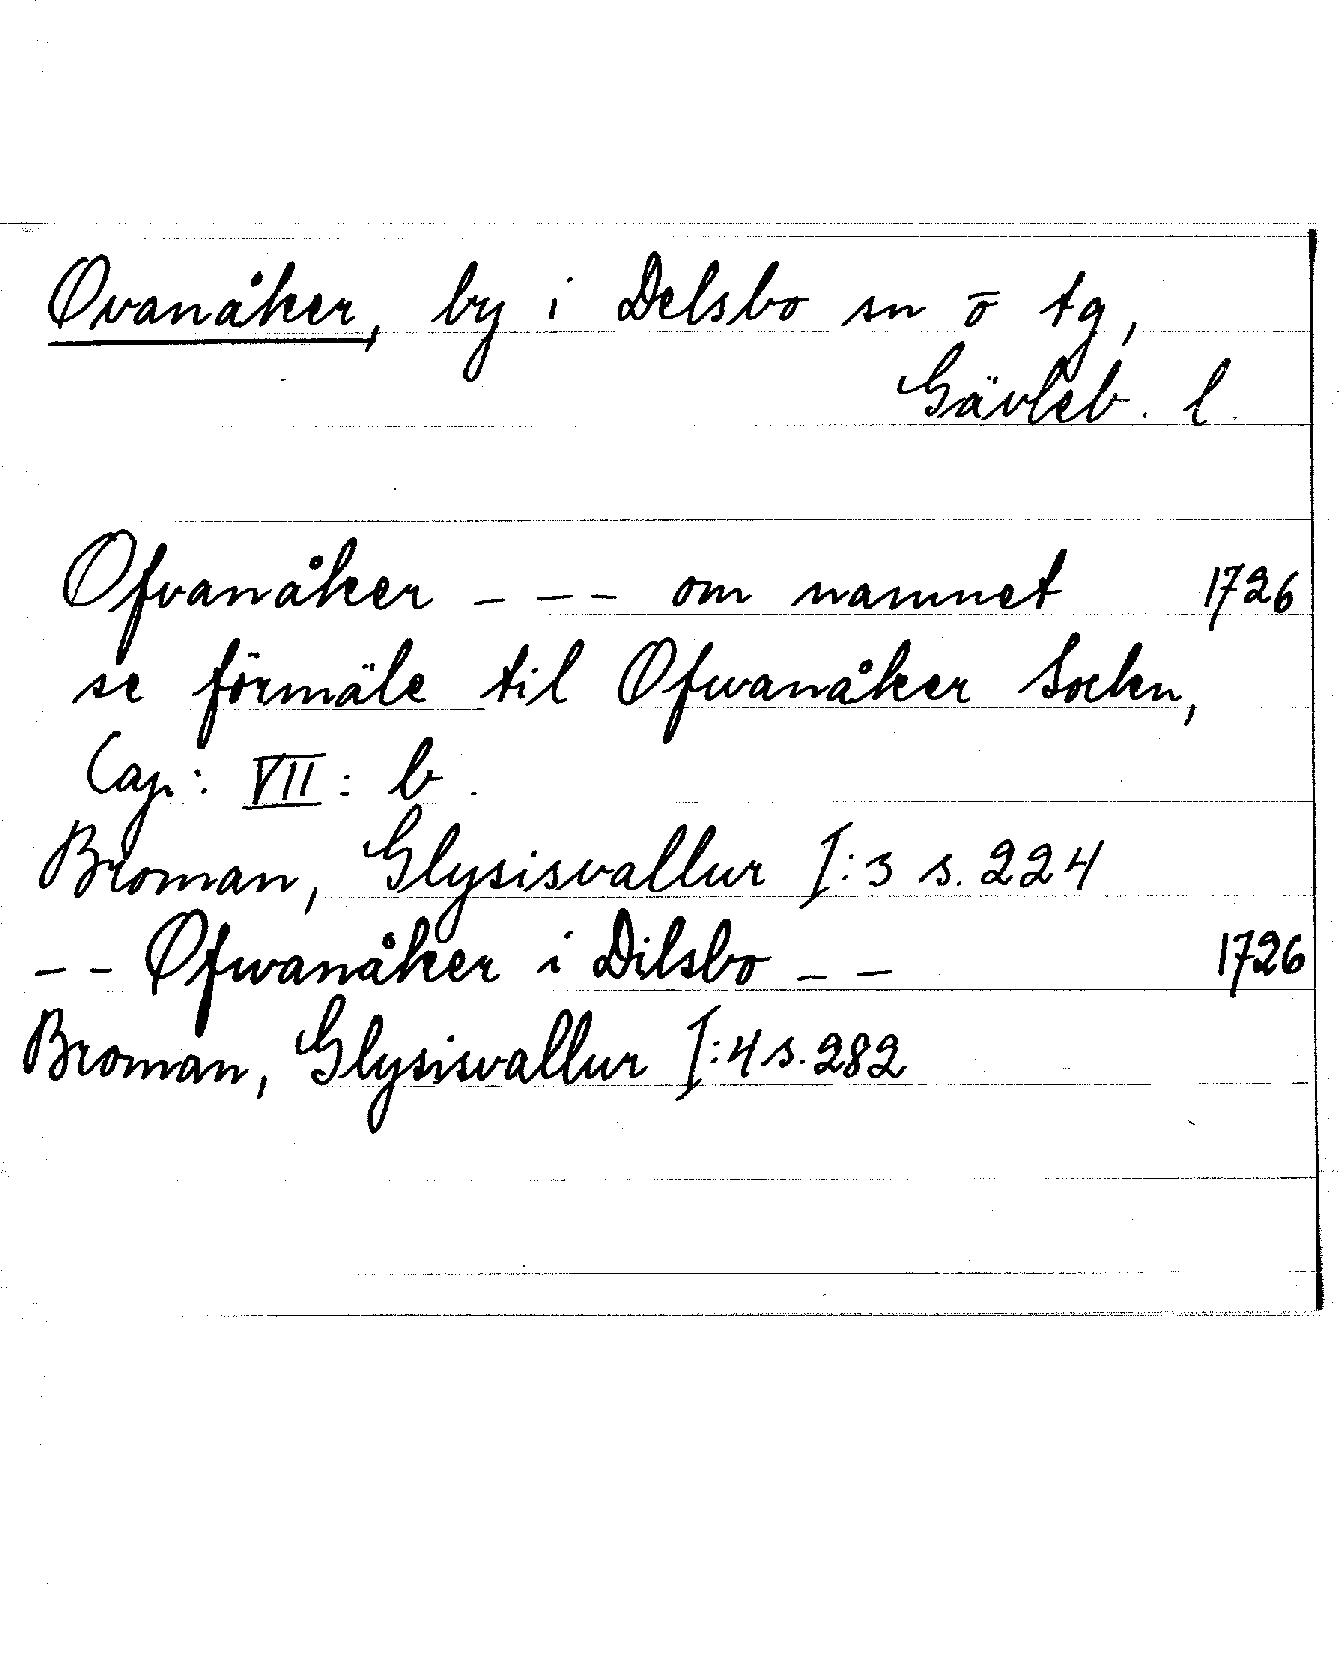 Ovanåker, by i Delsbo sn ō tg,
Gävleb. l.
Ofvanåker - - - om namnet 1726
se förmäle til Ofwanåker Sockn,
Cap: VII: b.
Broman, Glysisvallur I:3 s. 224
- - Ofwanåker i Dilsbo - - 1726
Broman, Glysisvallur I:4 s. 282